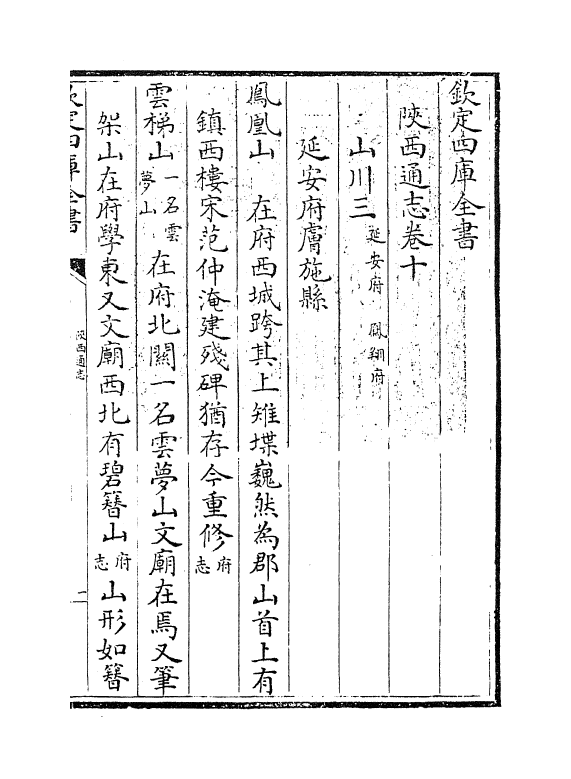 欽定四庫全書
陝西通志卷十
山川三 延安府 鳳翔府
延安府膚施縣
鳳凰山 在府西城跨其上雉堞巍然為郡山首上有
鎮西樓宋范仲淹建殘碑猶存今重修府志
雲梯山一名雲夢山在府北關一名雲夢山文廟在焉又筆
架山在府學東又文廟西北有碧簮山府志山形如簮
欽定四庫全書
陜西通志